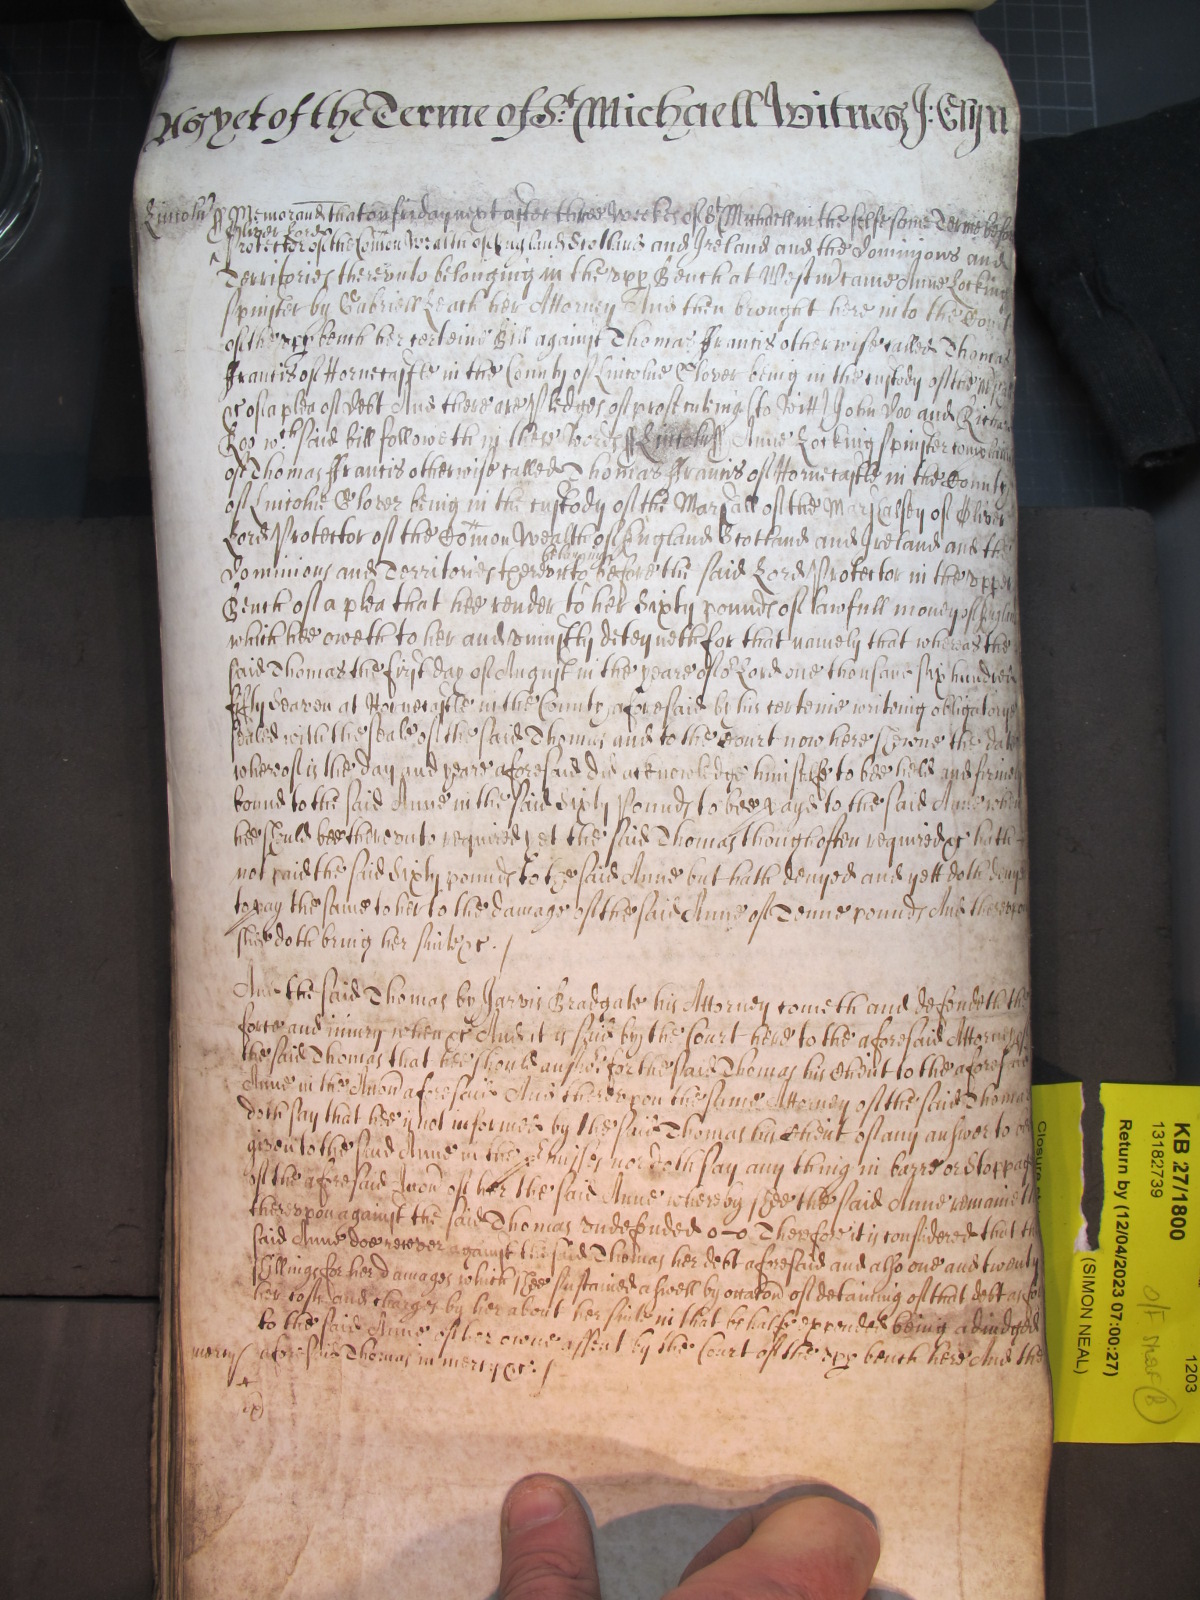 As yet of the Terme of St: Michaell Witnes J: Glyn
Lincoln ss Memorand that on friday next after three Weekes of St Michaell in the selfe same Terme before
Oliver Lord
Protector of the Com̄on Wealth of England Scotland and Ireland and the Dominions and
Territories thereunto belonging in the upp Bench at Westm̄ came Anne Locking
spinster by Gabriell Leach her Attorney And then brought here into the Court
of the upp bench her certeine Bill against Thomas Francis otherwise called Thomas
Francis of Hornecastle in the County of Lincolne Glover being in the custody of the
&c of a plea of Debt And there are Pledges of prosecuting (to witt) John Doo and Richard
Roo wch said bill followeth in these words ss Lincoln ss Anne Locking spinster
of Thomas Francis otherwise called Thomas Francis of Hornecastle in the County
of Lincolne Glover being in the custody of the Marshall of the Marshalsey of Oliver
Lord Protector of the Com̄on Wealth of England Scotland and Ireland and the
belonging
Dominions and Territories thereunto before the said Lord Protector in the upper
Bench of a plea that hee render to her Sixty pounds of lawfull money of England
which hee oweth to her and uniustly deteyneth for that namely that whereas the
said Thomas the first day of August in the yeare of or Lord one thousand six hundred
fifty seaven at Hornecastle in the County aforesaid by his certeine writeing obligatory
sealed with the seale of the said Thomas and to the Court now here shewne the date
whereof is the day and yeare aforesaid did acknowledge himselfe to bee held and firmely
bound to the said Anne in the said Sixty Pounds to bee payd to the said Anne when
hee should bee thereunto required yet the said Thomas though often required &c hath
not paid the said Sixty pounds to the said Anne but hath denyed and yett doth deny
to pay the same to her to the damage of the said Anne of Tenne pounds And thereupon
shee doth bring her suite &c. /
And the said Thomas by Jarvis Bradgate his Attorney cometh and defendeth the
force and iniury when &c And it is said by the Court here to the aforesaid Attorney of
the said Thomas that hee should answere for the said Thomas his Client to the aforesaid
Anne in the Accōn aforesaid And thereupon the same Attorney of the said Thomas
doth say that hee is not informed by the said Thomas his Client of any answer to bee
given to the said Anne in the premisses nor doth say any thing in barre or stoppage
of the aforesaid Accōn of her the said Anne whereby shee the said Anne remaineth
thereupon against the said Thomas undefended o-o Therefore it is considered that the
said Anne doe recover against the said Thomas her debt aforesaid and also one and twenty
shillings for her damages which shee sustained aswell by occasion of detaining of that debt as for
her costs and charges by her about her suite in that behalfe expended being adiudged
to the said Anne of her owne assent by the Court of the upp bench here And the
mercy aforesaid Thomas in mercy &c: /
KB 27/1800
13182739
Return by (12/04/2023 07:00:27)
(SIMON NEAL)
1203
Closure